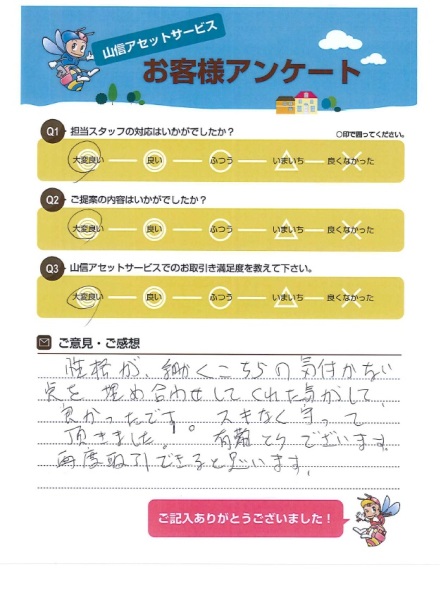 山信アセットサービス
お客様アンケート
Q1 担当スタッフの対応はいかがでしたか？
○印で囲ってください。
大変良い 良い ふつう いまいち 良くなかった
Q2 ご提案の内容はいかがでしたか？
大変良い 良い ふつう いまいち 良くなかった
Q3 山信アセットサービスでのお取引き満足度を教えて下さい。
大変良い 良い ふつう いまいち 良くなかった
ご意見・ご感想
性格が、細かくこちらの気付かない
点を 埋め合わせしてくれた気がして、
良かったです。 スキなく守って
頂きました。 有難とうございます。
再度取引できると思います。
ご記入ありがとうございました！